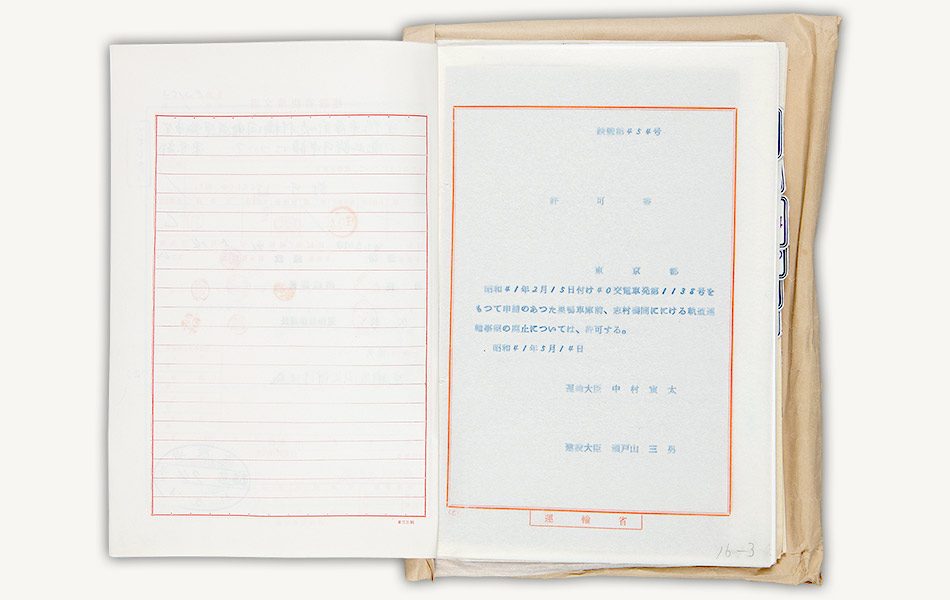 鉄監第454号
許可書
東京都
昭和41年2月15日付け40交電車発第1138号を
もつて申請のあつた巣鴨車庫前、志村橋間における軌道運
輸事業の廃止については、許可する。
昭和41年5月14日
運輸大臣 中村寅太
建設大臣 瀬戸山三男
運輸省
16-3